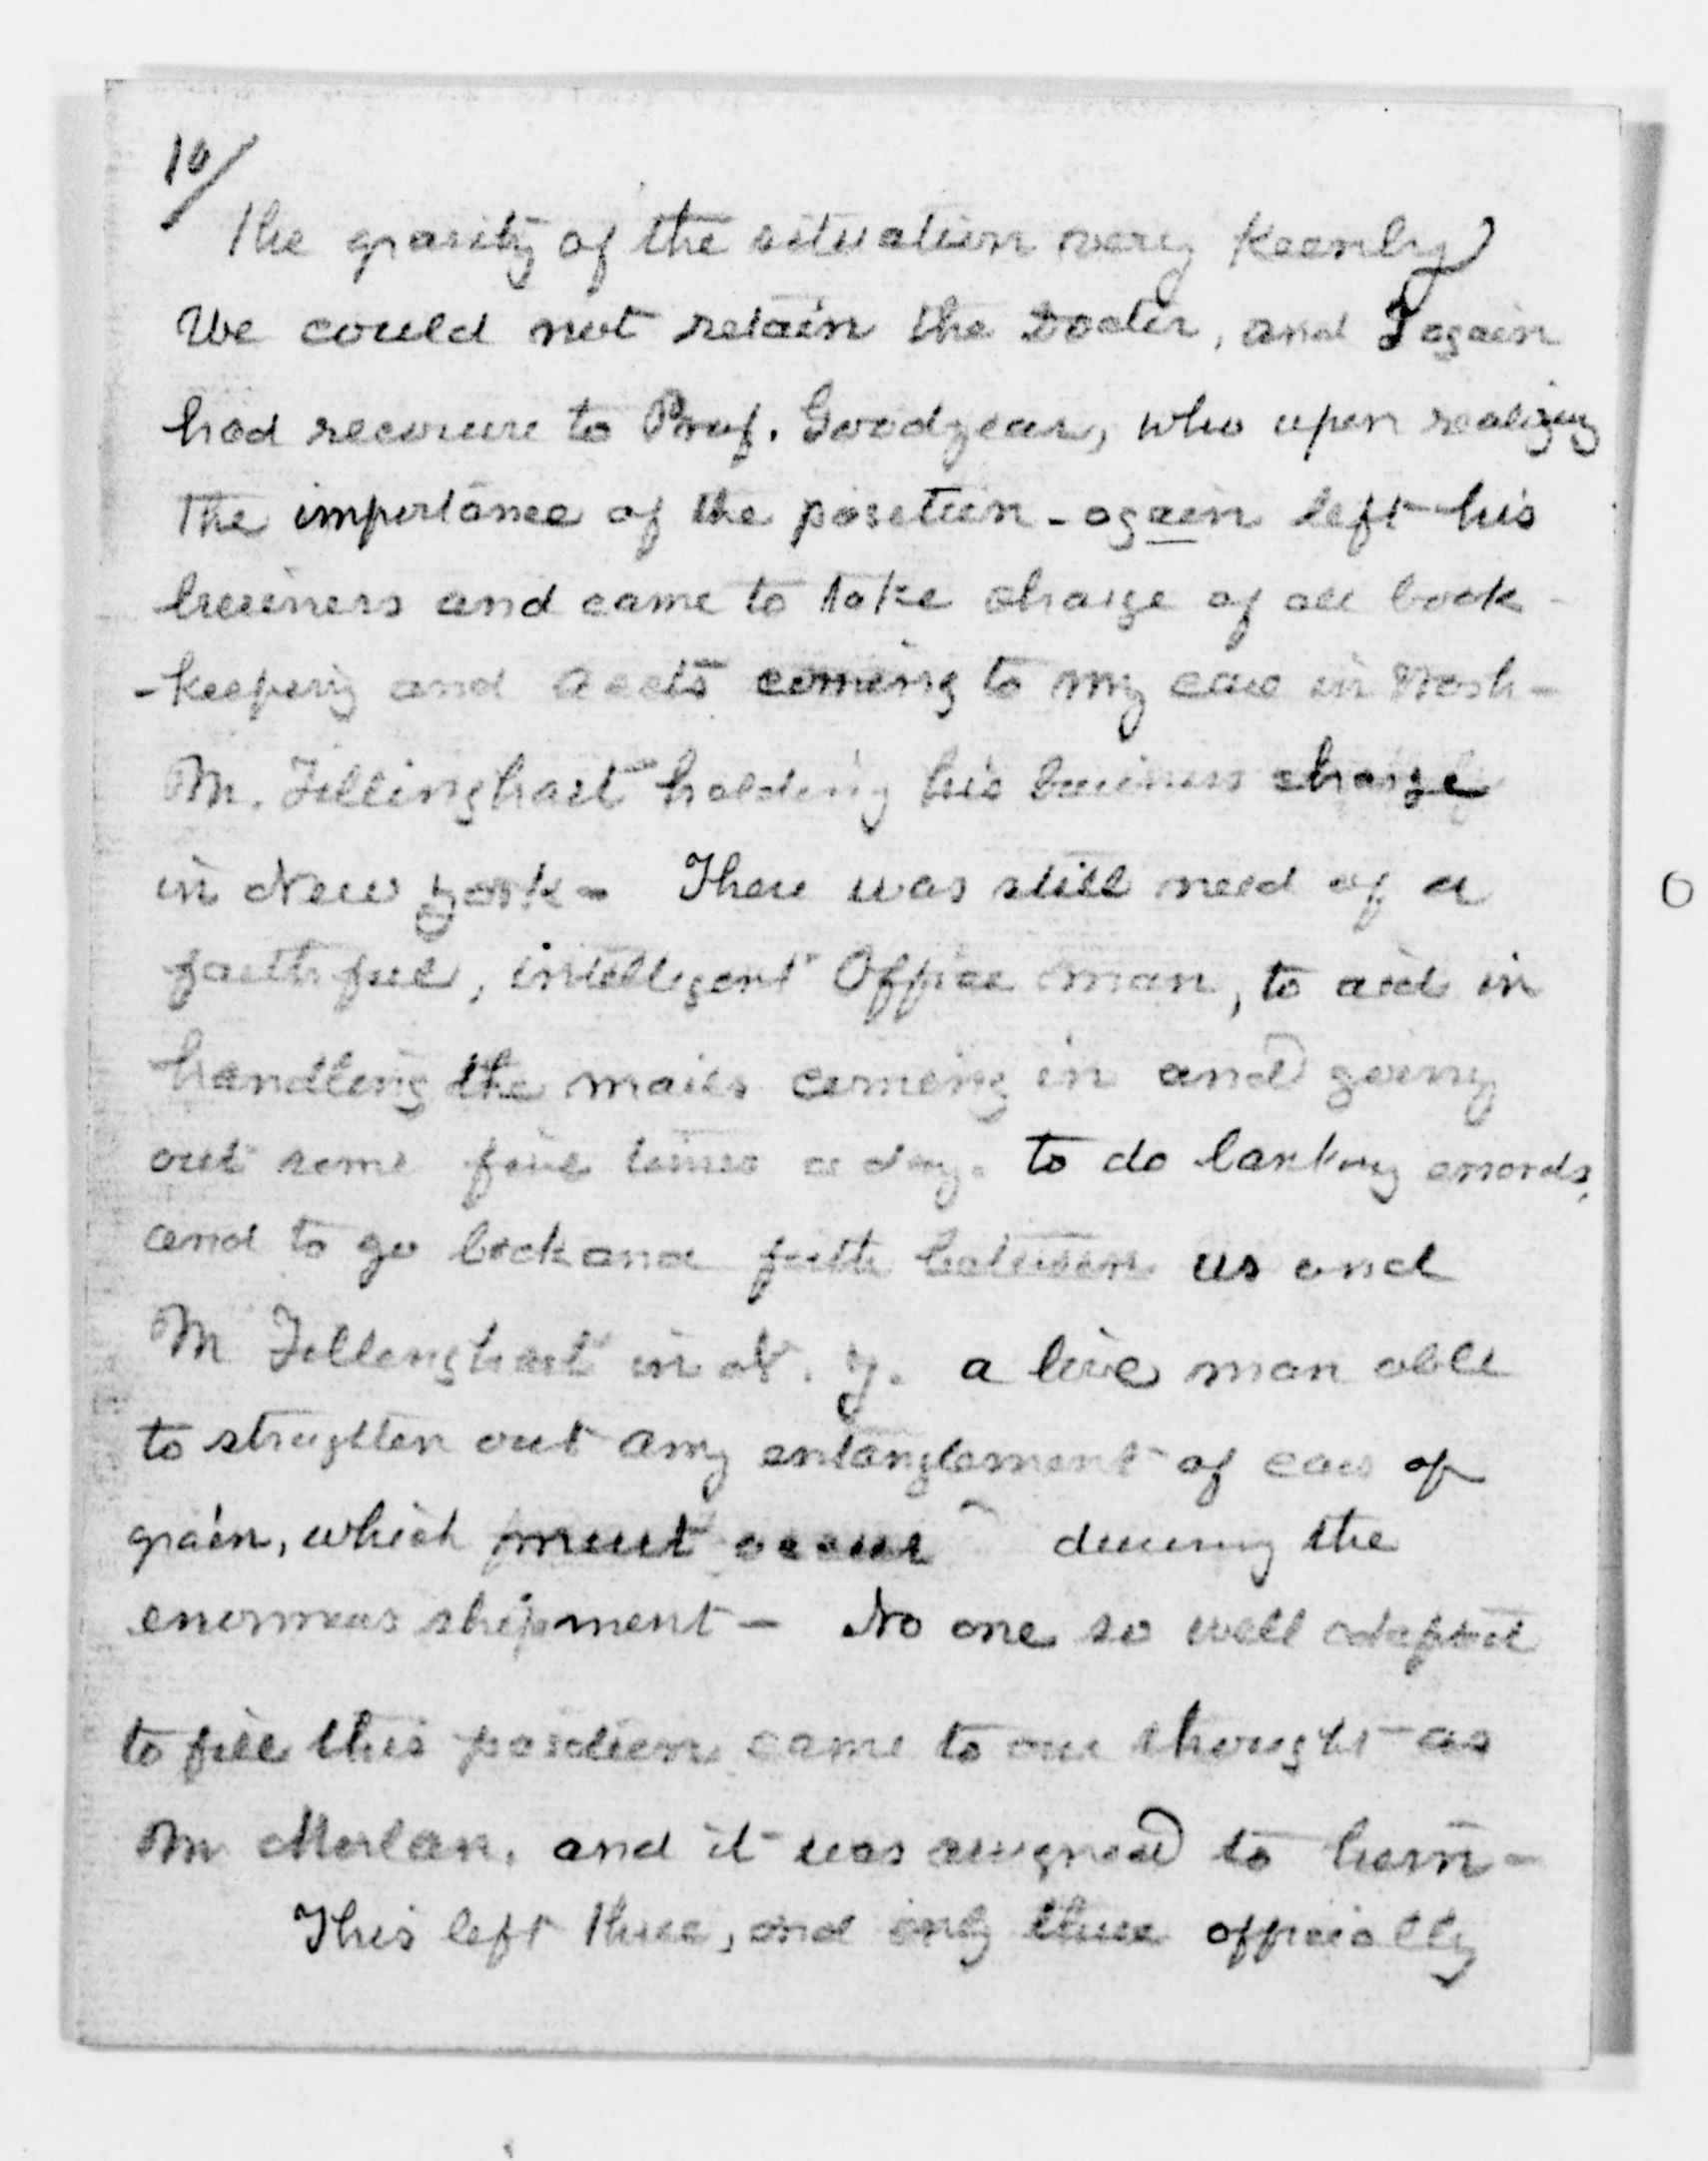 10/
the gravity of the situation very keenly
We could not retain the Doctor, and I again
had recourse to Prof. Goodyear, who upon realizing
the importance of the position - again left his
business and came to take charge of all book-
-keeping and accts coming to my care in Wash-
Mr. Tillinghast holding his business charge
in New York - There was still need of a
faithful, intelligent Office man, to aid in
handling the mails coming in and going
out some five times a day. to do banking errands,
and to go back and forth between us and
Mr Tillinghast in N. Y. a live man able
to straighten out any entanglement of cars of
grain, which must occur during the
enormous shipment - No one so well adapted
to fill this position came to our thought as
Mr Morlan, and it was assigned to him -
This left three, and only three officially